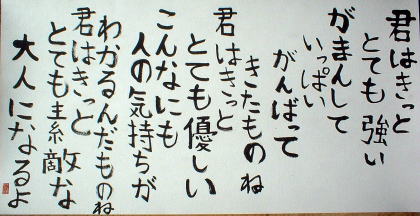 君はきっと
とても強い
がまんして
いっぱい
がんばって
きたものね
君はきっと
とても優しい
こんなにも
人の気持ちが
わかるんだものね
君はきっと
とても素敵な
大人になるよ